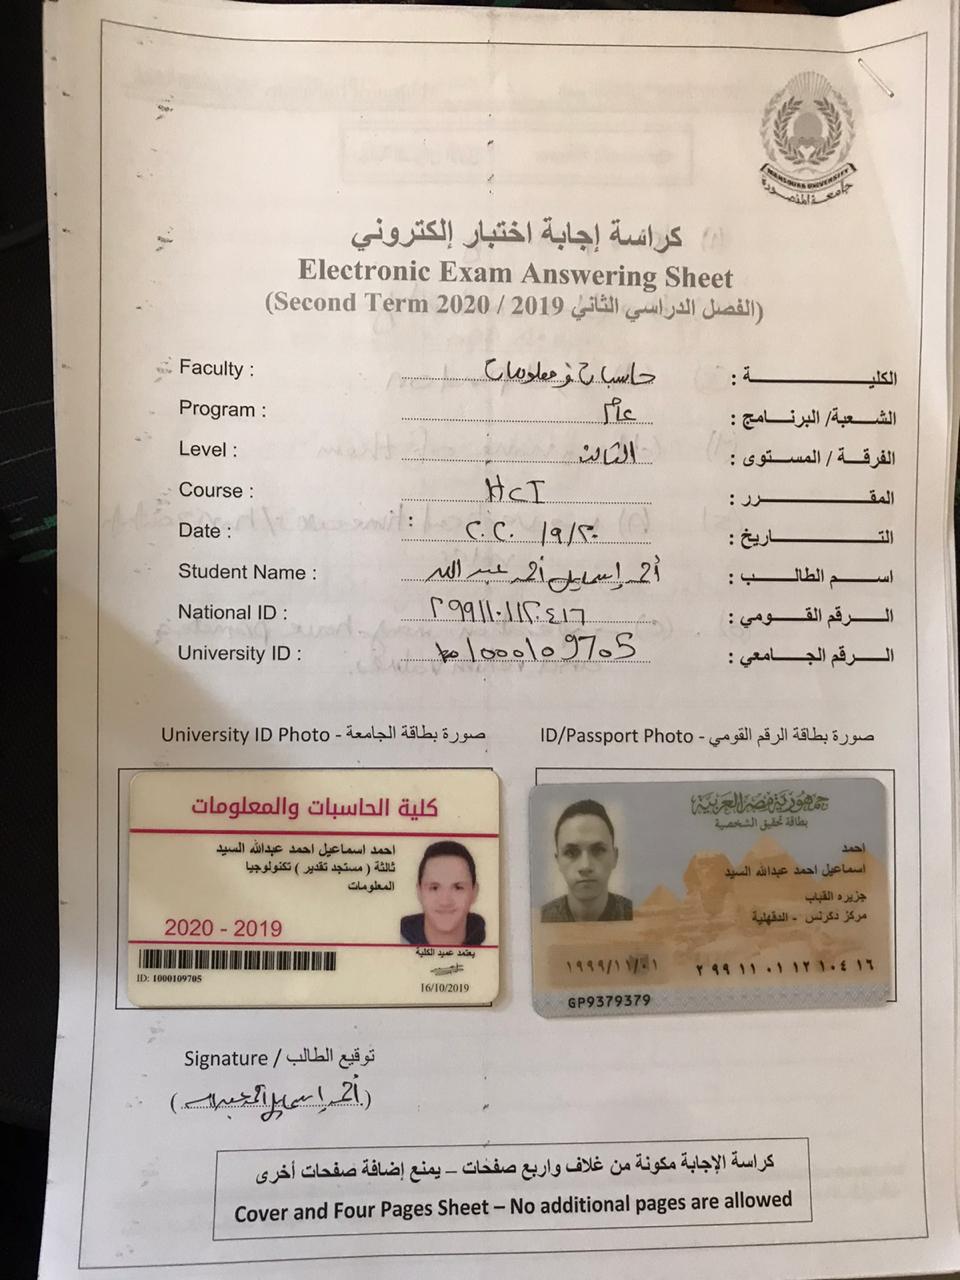 MANSOURA UNIVERSITY
جامعة المنصورة
كراسة إجابة اختبار إلكتروني
Electronic Exam Answering Sheet
(Second Term 2020 / 2019 الفصل الدراسي الثاني)
Faculty : حاسبات ومعلومات الكليـــة :
Program : عام الشعبة/ البرنامج :
Level : الثالثة الفرقة / المستوى :
Course : HCI المقـــرر :
Date : التـــاريخ :
Student Name : أحمد إسماعيل أحمد عبدالله اســم الطالــب :
National ID : الـرقم القـومي :
University ID : 1000109705 الـرقم الجـامعي :
University ID Photo - صورة بطاقة الجامعة
ID/Passport Photo - صورة بطاقة الرقم القومي
كلية الحاسبات والمعلومات
احمد اسماعيل احمد عبدالله السيد
ثالثة ( مستجد تقدير ) تكنولوجيا
المعلومات
2020 - 2019
يعتمد عميد الكلية
ID: 1000109705
16/10/2019
جمهورية مصر العربية
بطاقة تحقيق الشخصية
احمد
اسماعيل احمد عبدالله السيد
جزيره القباب
مركز دكرنس - الدقهلية
١٩٩٩/١١/٠١
٢ ٩٩ ١١ ٠١ ١٢ ١٠٤ ١٦
GP9379379
Signature / توقيع الطالب
(أحمد إسماعيل أحمد عبدالله)
كراسة الإجابة مكونة من غلاف واربع صفحات – يمنع إضافة صفحات أخرى
Cover and Four Pages Sheet – No additional pages are allowed